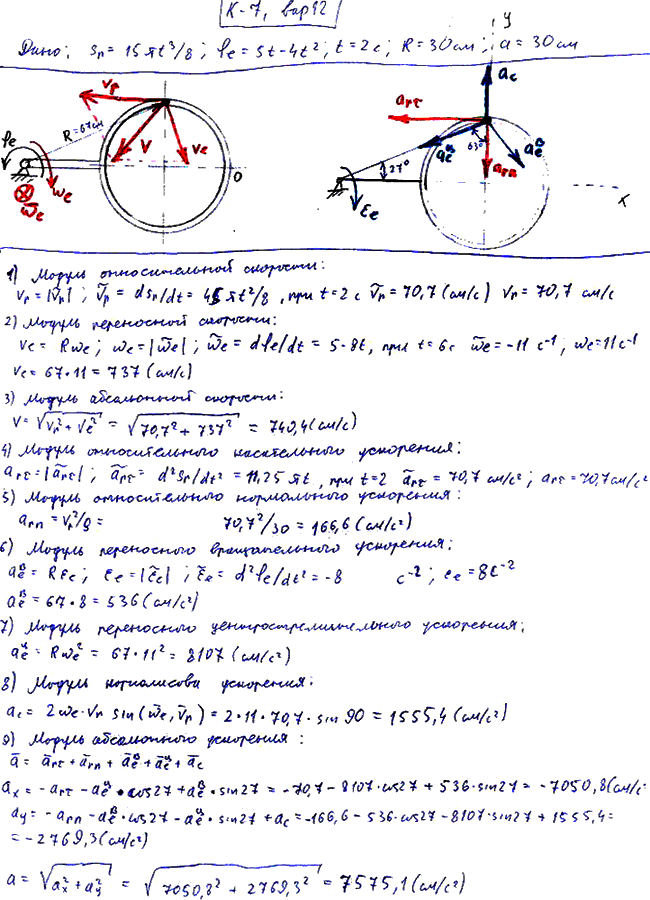 К-7, вар12
Дано: Sr = 15πt³/8; φe = 5t-4t²; t = 2c; R = 30 см; a = 30 см
vr
R=67см
V
ve
φe
ωe
ω̄e
O
y
ac
arτ
aeц
63°
aeв
27°
arn
εe
x
1) Модуль относительной скорости:
vr = |ṽr|; ṽr = dSr/dt = 45πt²/8, при t=2c ṽr = 70,7 (см/с) vr = 70,7 см/с
2) Модуль переносной скорости:
ve = Rωe; ωe = |ω̃e|; ω̃e = dφe/dt = 5-8t, при t=6c ω̃e = -11 c⁻¹, ωe = 11 c⁻¹
ve = 67·11 = 737 (см/с)
3) Модуль абсолютной скорости:
V = √vr²+ve² = √70,7²+737² = 740,4 (см/с)
4) Модуль относительного касательного ускорения:
arτ = |ãrτ|; ãrτ = d²Sr/dt² = 11,25πt, при t=2 ãrτ = 70,7 см/с²; arτ = 70,7 см/с²
5) Модуль относительного нормального ускорения:
arn = vr²/ρ = 70,7²/30 = 166,6 (см/с²)
6) Модуль переносного вращательного ускорения:
aeв = Rεe; εe = |ε̃e|; ε̃e = d²φe/dt² = -8 c⁻²; εe = 8c⁻²
aeв = 67·8 = 536 (см/с²)
7) Модуль переносного центростремительного ускорения:
aeц = Rωe² = 67·11² = 8107 (см/с²)
8) Модуль кориолисова ускорения:
ac = 2ωe·vr sin(ω̄e, v̄r) = 2·11·70,7·sin 90 = 1555,4 (см/с²)
9) Модуль абсолютного ускорения:
ā = ārτ + ārn + āeв + āeц + āc
ax = -arτ - aeц·cos27 + aeв·sin27 = -70,7 - 8107·cos27 + 536·sin27 = -7050,8 (см/с
ay = -arn - aeв·cos27 - aeц·sin27 + ac = -166,6 - 536·cos27 - 8107·sin27 + 1555,4 =
= -2769,3 (см/с²)
a = √ax²+ay² = √7050,8²+2769,3² = 7575,1 (см/с²)